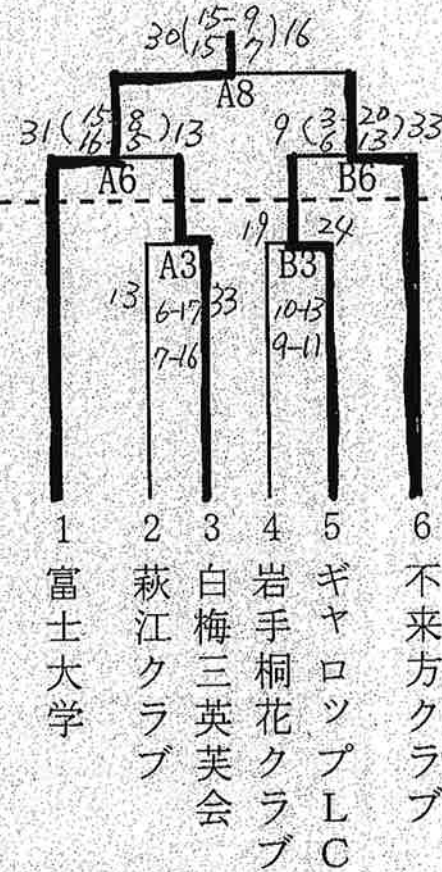 30(15-9
15-7)16
A8
31(15-8
16-5)13
A6
9(3-20
6-13)33
B6
A3
13 6-17 33
7-16
19 B3 24
10-13
9-11
1 富士大学
2 萩江クラブ
3 白梅三英芙会
4 岩手桐花クラブ
5 ギャロップLC
6 不来方クラブ